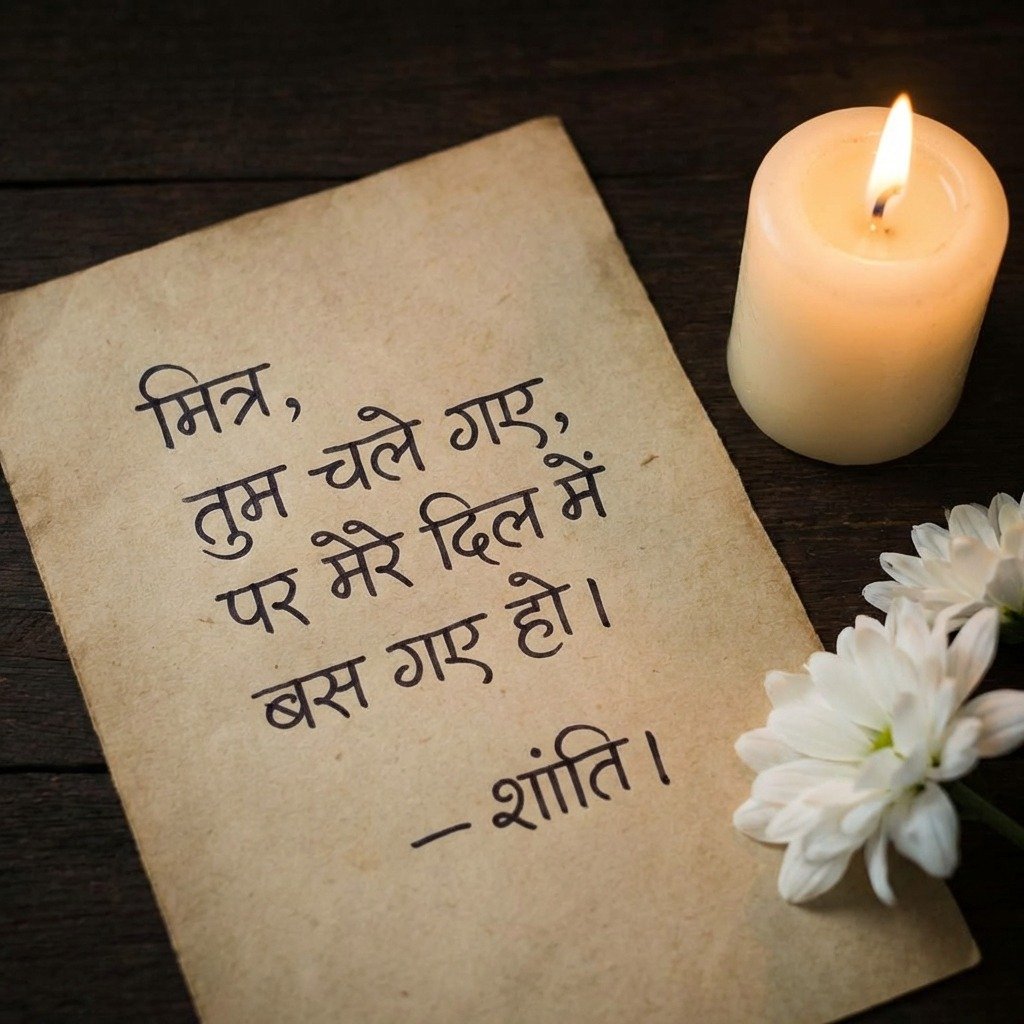 मित्र,
तुम चले गए,
पर मेरे दिल में
बस गए हो।
– शांति।